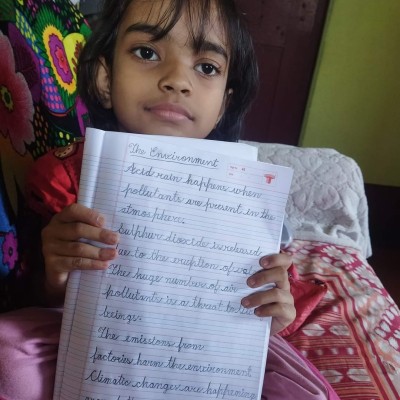 The Environment
Acid rain happens when
pollutants are present in the
atmosphere.
Sulphur dioxide is released
due to the eruption of
The huge numbers of
pollutants is a threat to
beings.
The emissions from
factories harm the environment
Climatic changes are happening